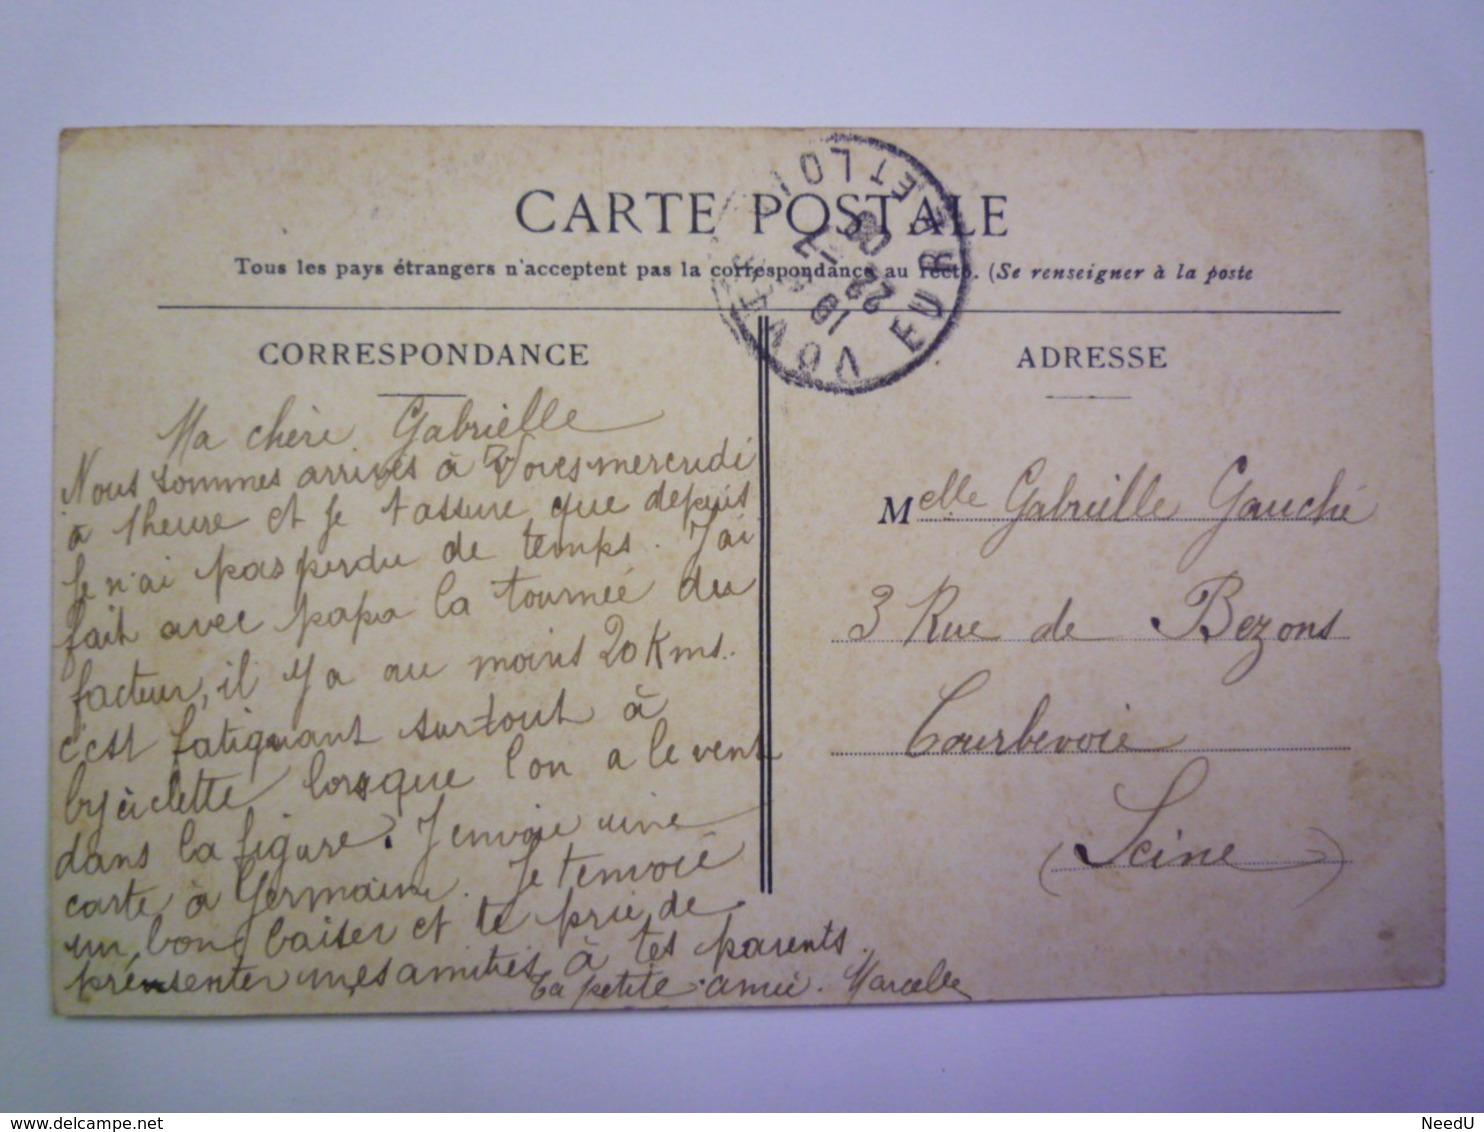 CARTE POSTALE
Tous les pays étrangers n'acceptent pas la correspondance au recto. (Se renseigner à la poste
CORRESPONDANCE
Ma chère Gabrielle
Nous sommes arrivés à Voves mercredi
à 1 heure et je t'assure que depuis
je n'ai pas perdu de temps. J'ai
fait avec papa la tournée du
facteur, il y a au moins 20 Kms.
c'est fatiguant surtout à
byciclette lorsque l'on a le vent
dans la figure. J'envoie une
carte à Germaine. Je t'envoie
un bon baiser et te prie de
présenter mes amitiés à tes parents.
Ta petite amie. Marcelle
ADRESSE
Melle Gabrielle Gauché
3 Rue de Bezons
Courbevoie
(Seine)
VOVES EURE ET LOIR
NeedU